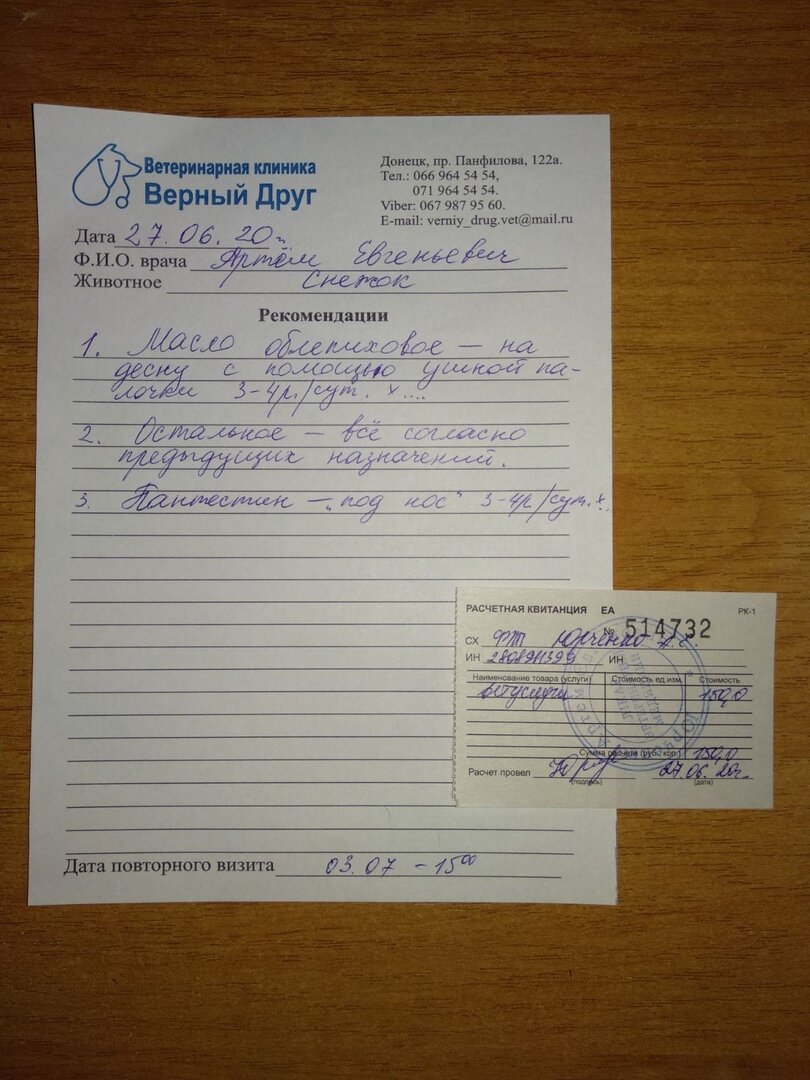 Ветеринарная клиника
Верный Друг
Донецк, пр. Панфилова, 122а.
Тел.: 066 964 54 54,
071 964 54 54.
Viber: 067 987 95 60.
E-mail: verniy_drug.vet@mail.ru
Дата 27.06.20г.
Ф.И.О. врача Артём Евгеньевич
Животное Снежок
Рекомендации
1. Масло облепиховое — на
десну с помощью ушной па-
лочки 3-4р./сут. х....
2. Остальное — всё согласно
предыдущих назначений.
3. Пантестин — „под нос" 3-4р/сут. х..
РАСЧЕТНАЯ КВИТАНЦИЯ ЕА РК-1
№ 514732
СХ ФЛП Юрченко А.Е.
ИН ИН
Наименование товара (услуги) Стоимость ед.изм. Стоимость
ветуслуги 150,0
Сумма расчета (руб. кор.) 150,0
Расчет провел 27.06.20г.
(подпись) (дата)
Дата повторного визита 03.07 - 15⁰⁰